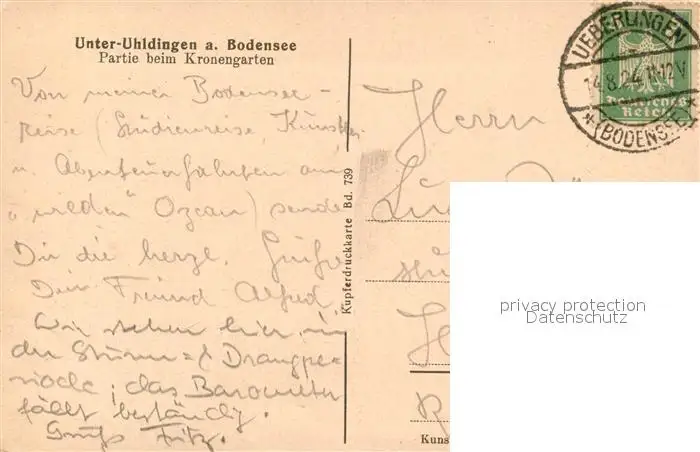 Unter-Uhldingen a. Bodensee
Partie beim Kronengarten
Von meiner Bodensee-
reise (Studienreise, Künstler
u. Abenteuerfahrten am
"wilden" Ozean) sende
Dir die herzl. Grüße
Dein Freund Alfred.
Wir stehen hier in
der Sturm= & Drangpe=
riode; das Barometer
fällt beständig.
Gruß Fritz.
Kupferdruckkarte Bd. 739
UEBERLINGEN
14.8.24. 11-12 V
* (BODENSEE)
Deutsches
Reich
Herrn
privacy protection
Datenschutz
Kuns